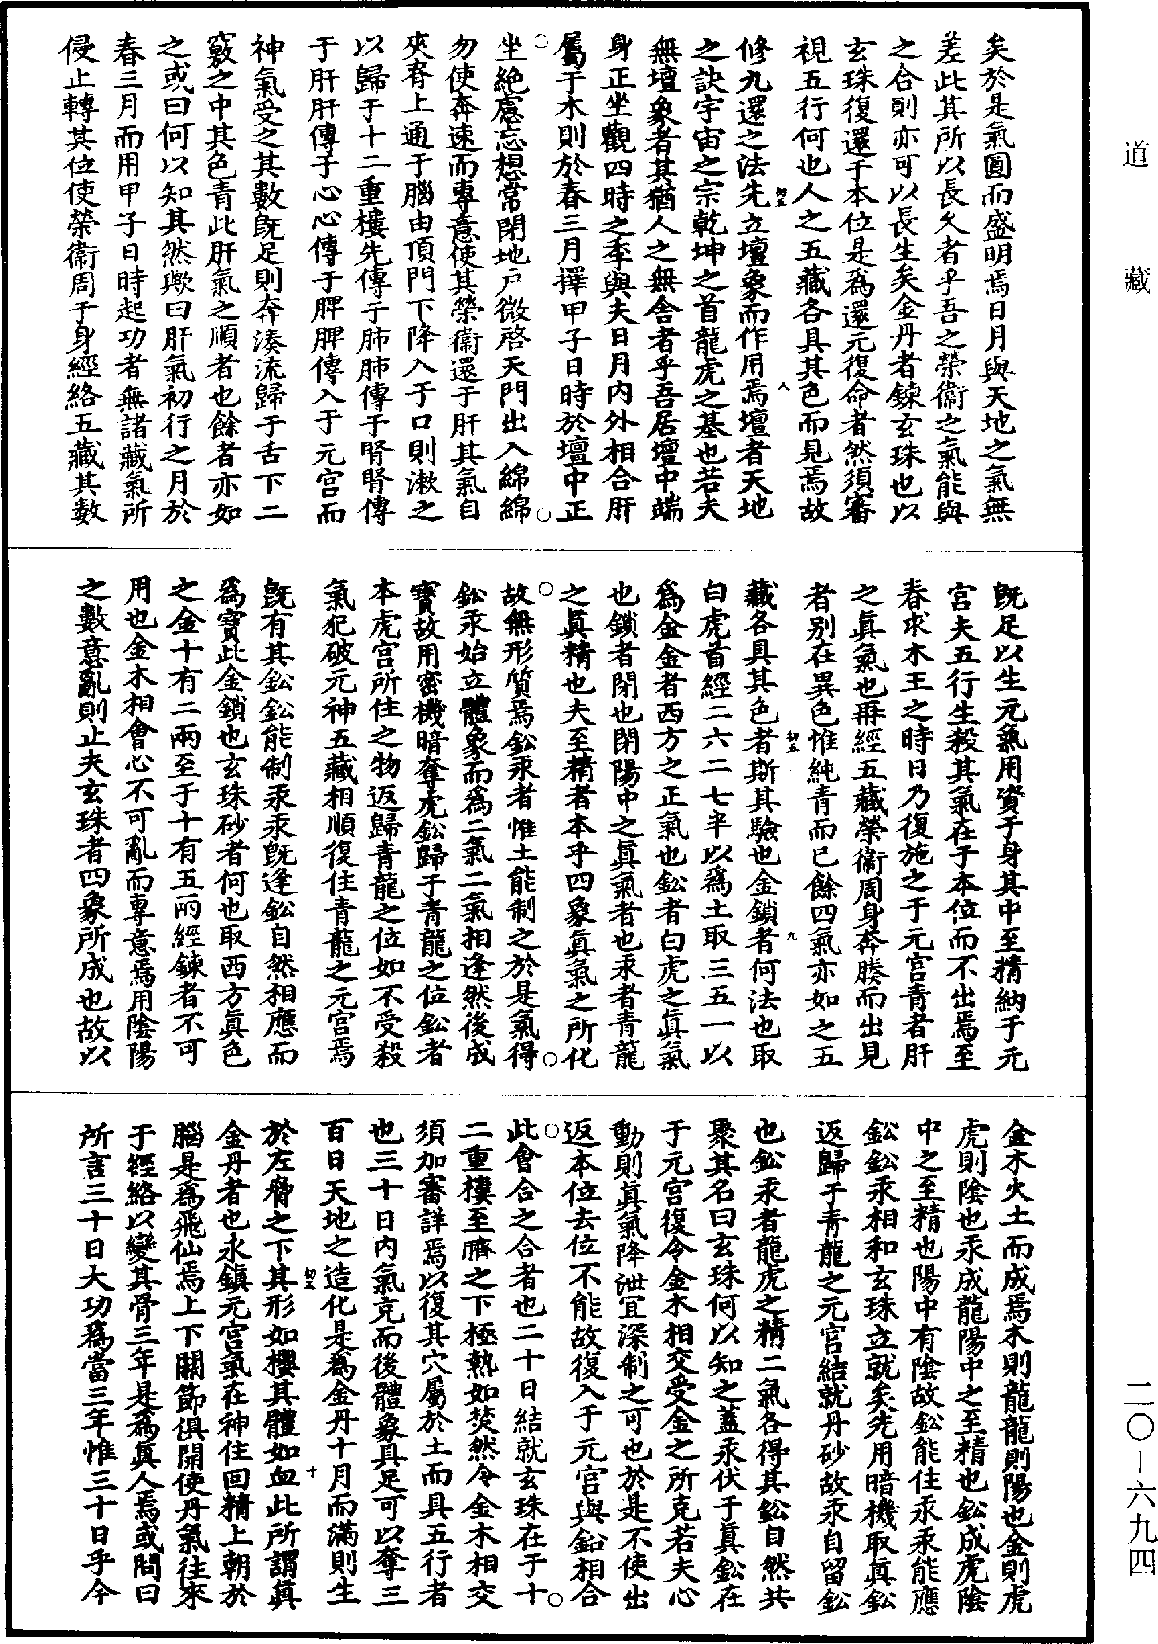 道藏
二〇—六九四
矣於是氣圓而盛明焉日月與天地之氣無
差此其所以長久者乎吾之榮衞之氣能與
之合則亦可以長生矣金丹者鍊玄珠也以
玄珠復還于本位是爲還元復命者然須審
視五行何也人之五藏各具其色而見焉故
修九還之法先立壇象而作用焉壇者天地
之訣宇宙之宗乾坤之首龍虎之基也若夫
無壇象者其猶人之無舍者乎吾居壇中端
身正坐觀四時之季與夫日月內外相合肝
屬于木則於春三月擇甲子日時於壇中正
坐絕慮忘想常閉地戶微啓天門出入綿綿
勿使奔速而專意使其榮衞還于肝其氣自
夾脊上通于腦由頂門下降入于口則漱之
以歸于十二重樓先傳于肺肺傳于腎腎傳
于肝肝傳于心心傳于脾脾傳入于元宮而
神氣受之其數旣足則奔湊流歸于舌下二
竅之中其色青此肝氣之順者也餘者亦如
之或曰何以知其然歟曰肝氣初行之月於
春三月而用甲子日時起功者無諸藏氣所
侵止轉其位使榮衞周于身經絡五藏其數
旣足以生元氣用資于身其中至精納于元
宮夫五行生殺其氣在于本位而不出焉至
春求木王之時日乃復施之于元宮青者肝
之眞氣也再經五藏榮衞周身奔騰而出見
者別在異色惟純青而已餘四氣亦如之五
藏各具其色者斯其驗也金鎖者何法也取
白虎首經二六二七半以爲土取三五一以
爲金金者西方之正氣也鈆者白虎之眞氣
也鎖者閉也閉陽中之眞氣者也汞者青龍
之眞精也夫至精者本乎四象眞氣之所化
故無形質焉鈆汞者惟土能制之於是氣得
鈆汞始立體象而爲二氣二氣相逢然後成
寶故用密機暗奪虎鈆歸于青龍之位鈆者
本虎宮所住之物返歸青龍之位如不受殺
氣犯破元神五藏相順復住青龍之元宮焉
旣有其鈆鈆能制汞汞旣逢鈆自然相應而
爲寶此金鎖也玄珠砂者何也取西方眞色
之金十有二兩至于十有五兩經鍊者不可
用也金木相會心不可亂而專意焉用陰陽
之數意亂則止夫玄珠者四象所成也故以
金木火土而成焉木則龍龍則陽也金則虎
虎則陰也汞成龍陽中之至精也鈆成虎陰
中之至精也陽中有陰故鈆能住汞汞能應
鈆鈆汞相和玄珠立就矣先用暗機取眞鈆
返歸于青龍之元宮結就丹砂故汞自留鈆
也鈆汞者龍虎之精二氣各得其鈆自然共
聚其名曰玄珠何以知之蓋汞伏于眞鈆在
于元宮復令金木相交受金之所克若夫心
動則眞氣降泄宜深制之可也於是不使出
返本位去位不能故復入于元宮與鉛相合
此會合之合者也二十日結就玄珠在于十
二重樓至臍之下極熱如焚然令金木相交
須加審詳焉以復其穴屬於土而具五行者
也三十日內氣克而後體象具足可以奪三
百日天地之造化是爲金丹十月而滿則生
於左脅之下其形如櫻其體如血此所謂眞
金丹者也永鎮元宮氣在神住回精上朝於
腦是爲飛仙焉上下關節俱開使丹氣往來
于經絡以變其骨三年是爲眞人焉或問曰
所言三十日大功爲當三年惟三十日乎今